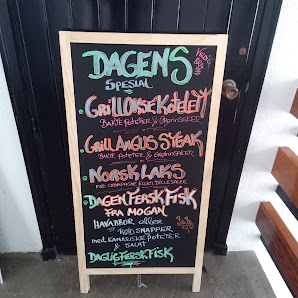 DAGENS
SPESIAL
GRILL OKSEKOTELETT
BAKTE POTETER & GRØNNSAKER
GRILL ANGUS STEAK
BAKTE POTETER & GRØNNSAKER
NORSK LAKS
MED CHAMPAGNE ELLER DILLESAUS
DAGEN FERSK FISK
FRA MOGAN
HAVABBOR eller
RØD SNAPPER
med KANARISKE POTETER
& SALAT
DAGLIG FERSK FISK